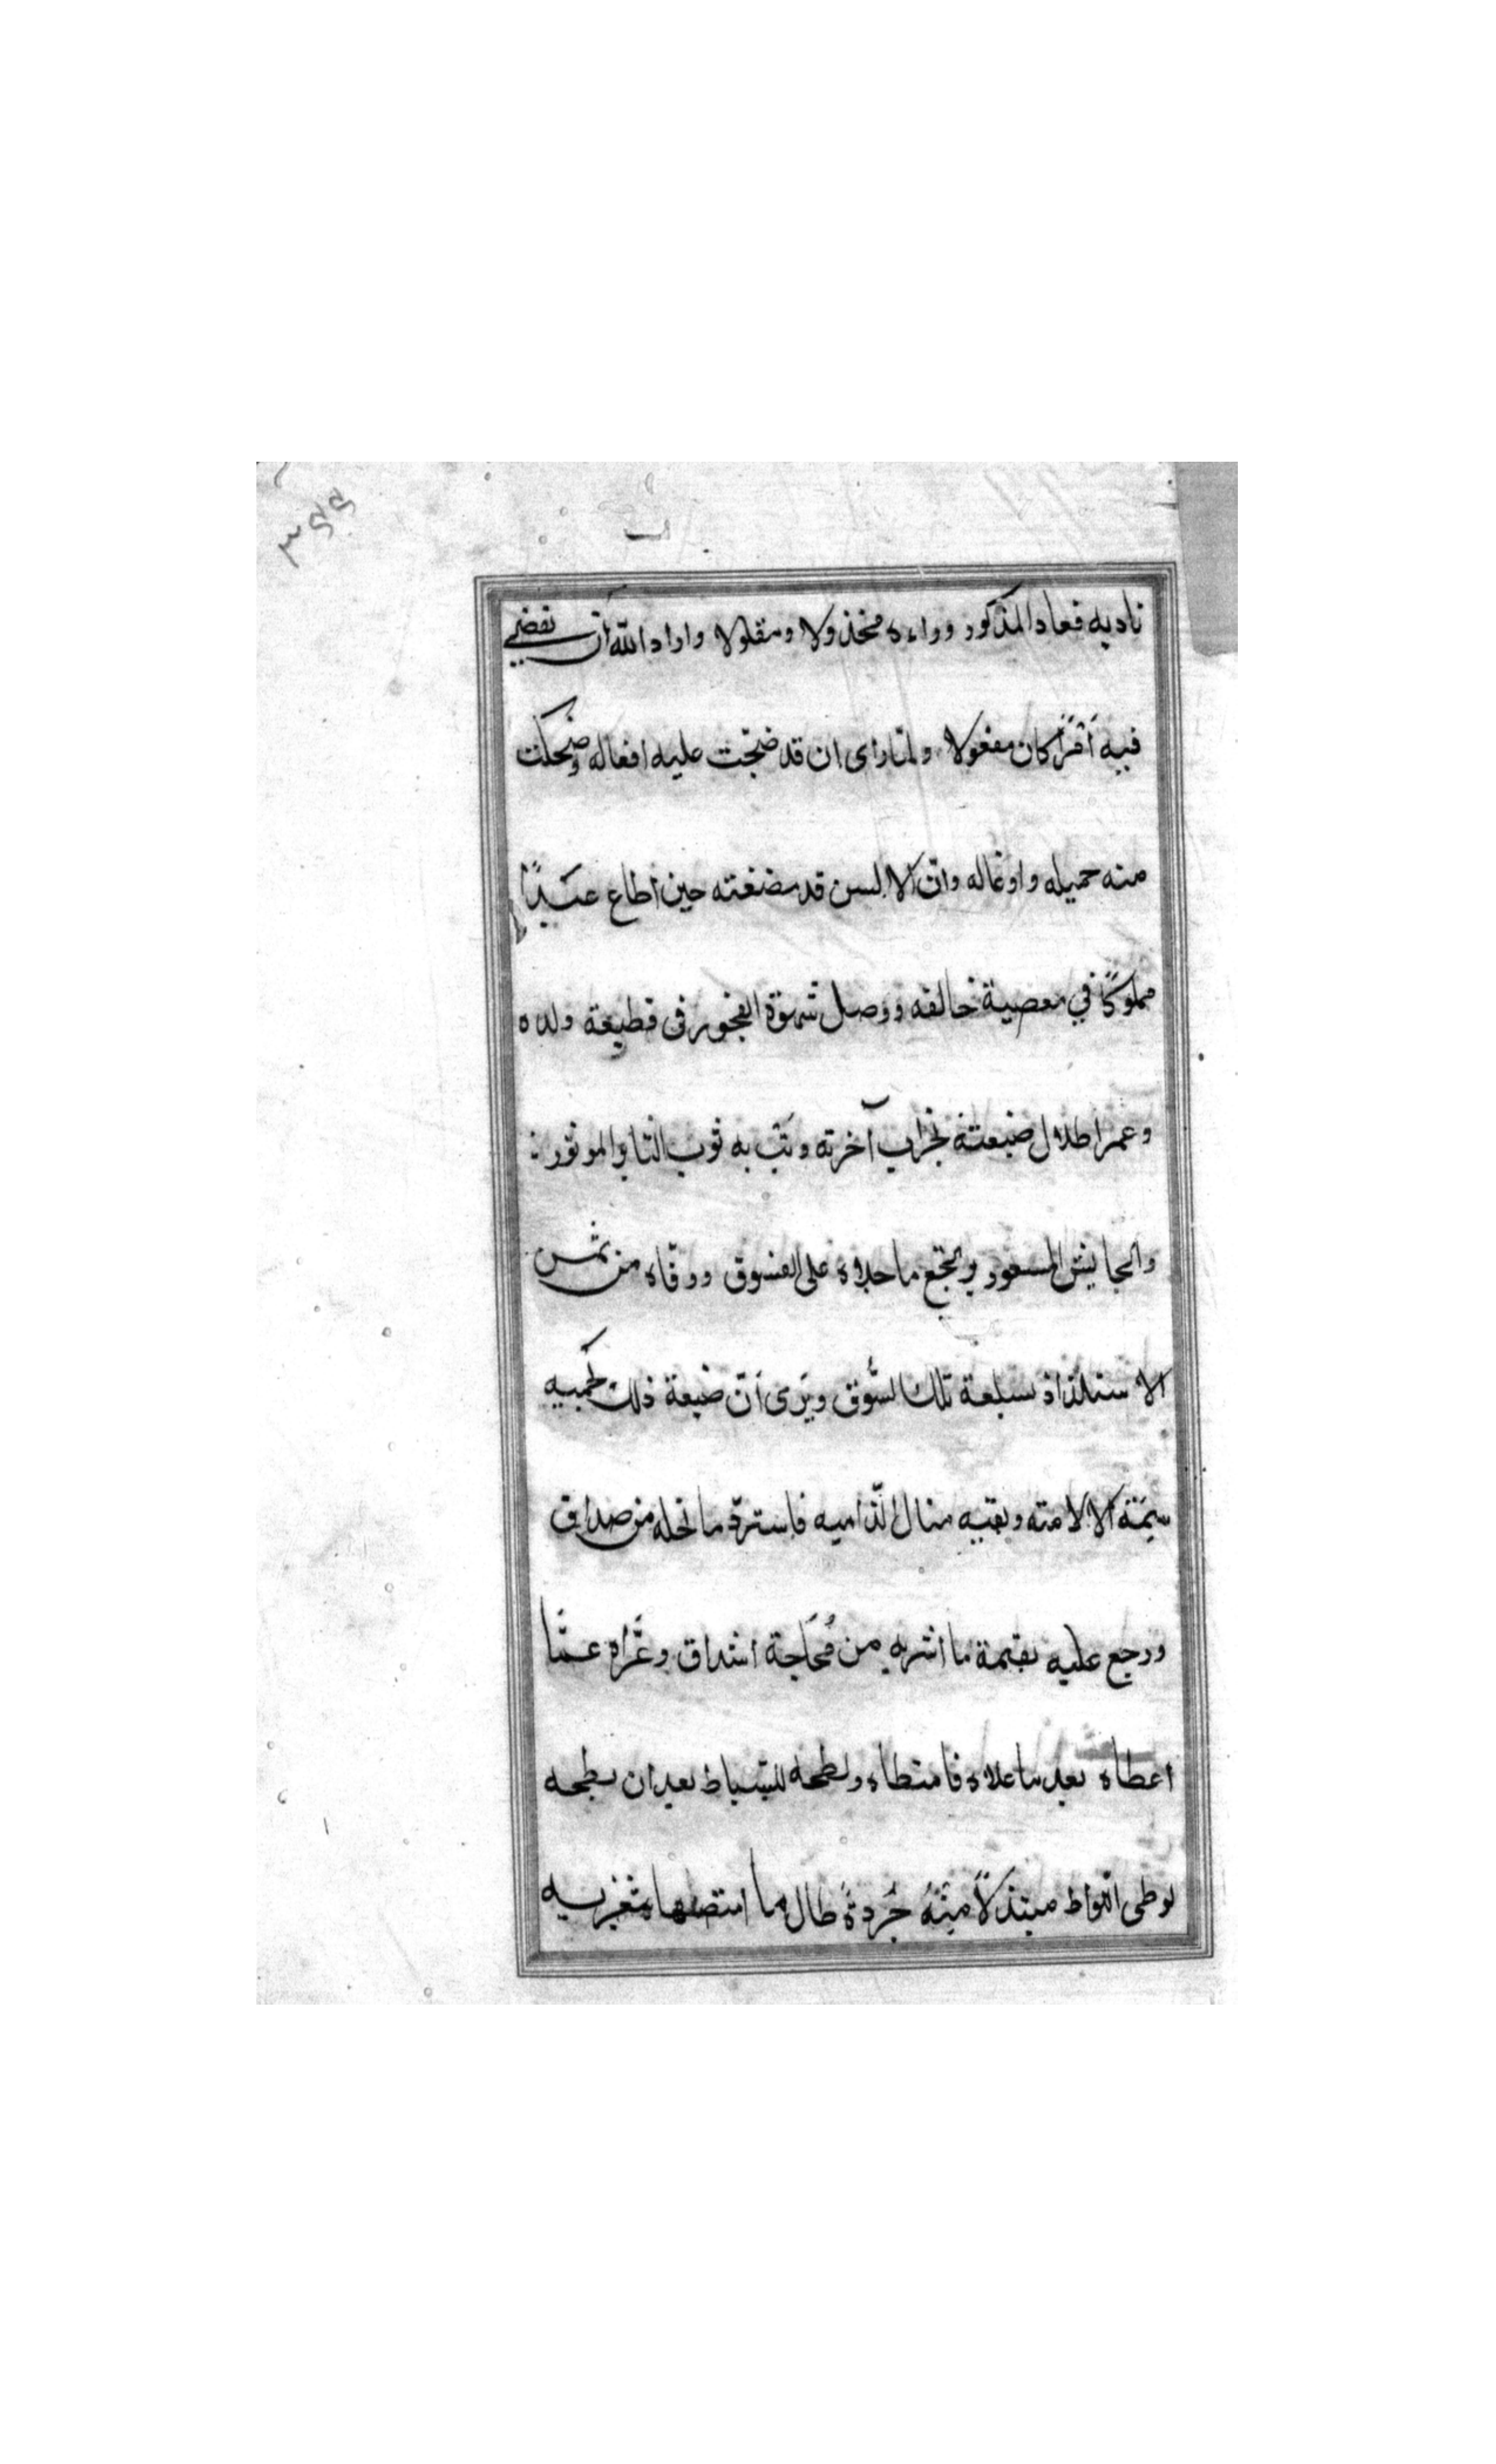 ٣٤٤
ناديه فعاد المذكور وراءه مخذولا ومقلولا واراد الله ان يقضي
فيه أمرًا كان مفعولا ولمّا راى ان قد ضجّت عليه افعاله وضحكت
منه حميله واوغاله وانّ الالسن قد مضغته حين أطاع عبدًا
مملوكًا في معصية خالقه ووصل شهوة الفجور فى قطيعة ولده
وعمر اطلال ضيعته بخراب آخرته به ثوب الموتور
المسعور ما حلاه على الفسوق ووقاه من ثمن
الاستلذاذ بسلعة تلك السّوق ويرى أنّ ضيعة ذلك
الا لامته منال فاستردّ ما نحله من صداق
ورجع عليه بقيمة ما اشربه من مُجَاجة اشداق وعرّاه عمّا
اعطاه بعد ما علاه فامتطاه وبطحه للسّياط بعد ان بطحه
لوطى اللواط مبتذلاً منه جُردةً طال ما امتصّها